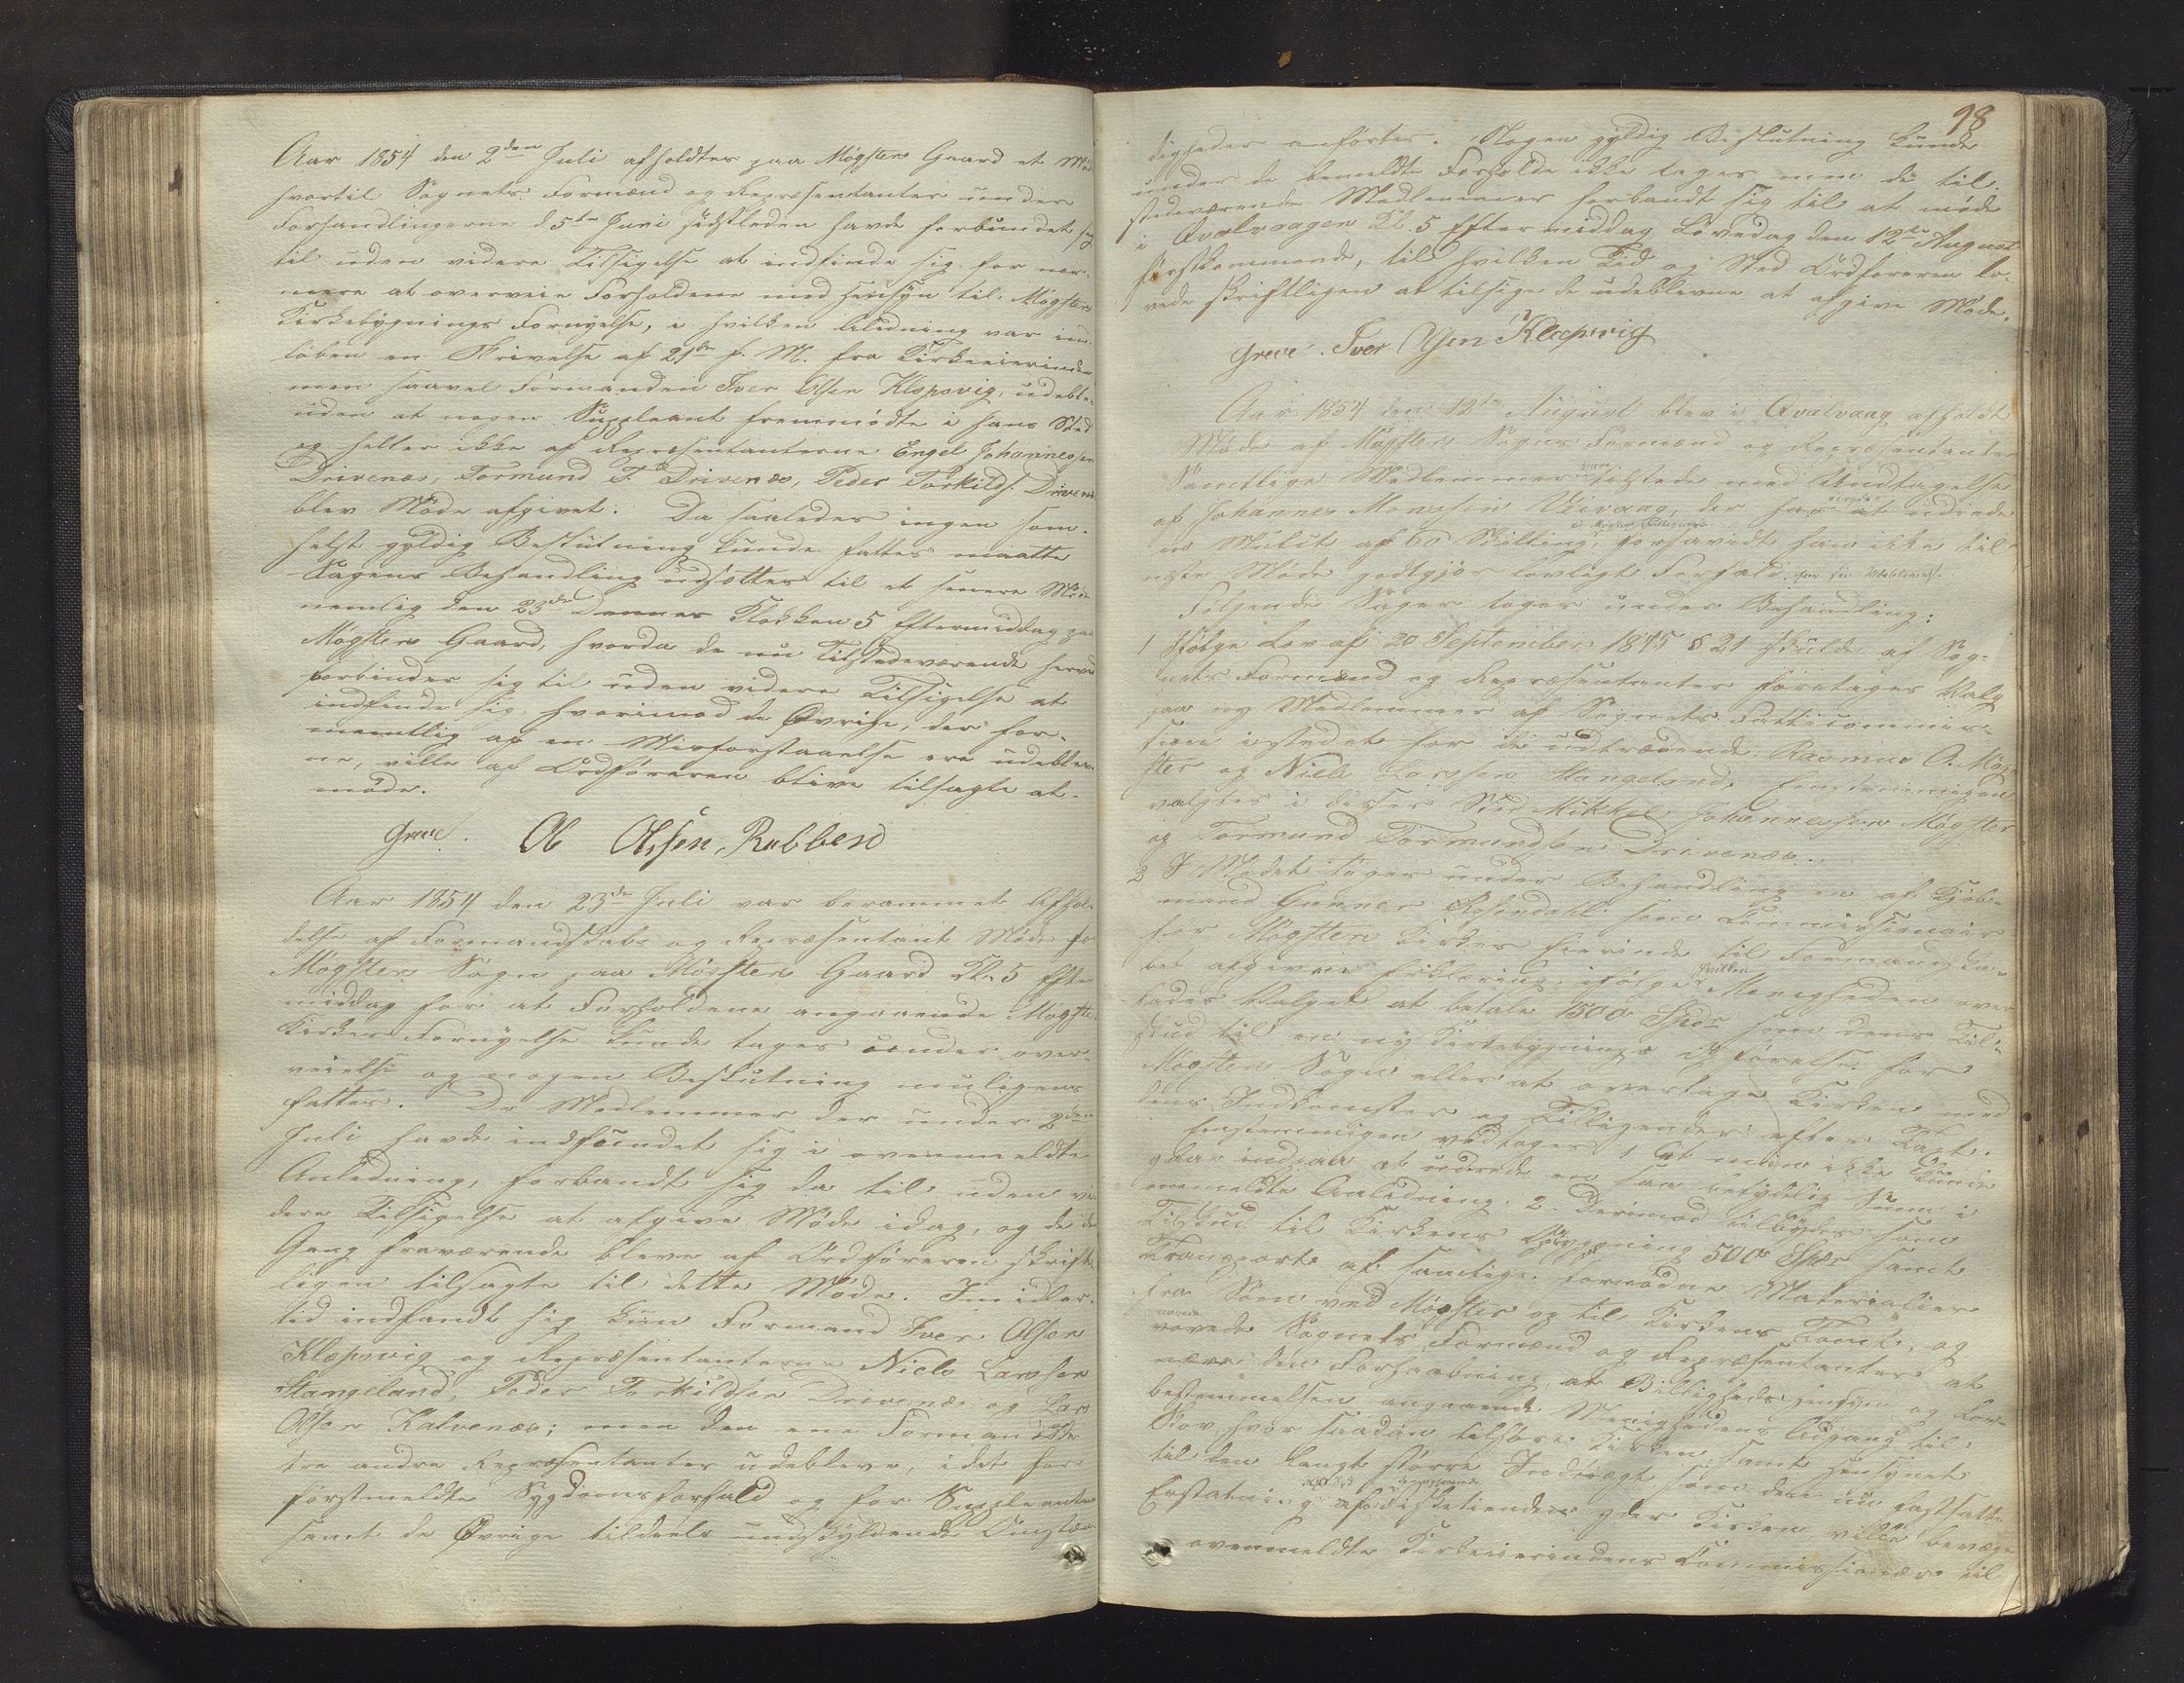 Aar 1854 den 2den Juli afholdtes paa Møgster Gaard et Mø
hvortil Sognets Formænd og Repræsentanter under
Forhandlingerne d 5te Juni sidstleden havde forbundet sig
til uden videre Tilsigelse at indfinde sig for nær-
mere at overveie Forholdene med Hensyn til Møgster
Kirkebygnings Fornyelse, i hvilken Anledning var ind-
løben en Skrivelse af 21de f. M. fra Kirkeeierinden
men saavel Formanden Iver Olsen Klepsvig, udeblev
uden at nogen Suppleant fremmødte i hans Sted
og heller ikke af Repræsentanterne Engel Johannessen
Drivenæs, Tormund T. Drivenæs, Peder Torkilds. Drivenæs
blev Møde afgivet. Da saaledes ingen som-
helst gyldig Beslutning kunde fattes maatte
Sagens Behandling udsættes til et senere Møde
nemlig den 23de Dennes Klokken 5 Eftermiddag paa
Møgster Gaard, hvorda de nu Tilstedeværende herved
forbinder sig til uden videre Tilsigelse at
indfinde sig, hvorimod de Øvrige, der for-
mentlig af en Misforstaaelse ere udeblev-
ne, ville af Ordføreren blive tilsagte at
møde.
Greve. Ol Olsen, Rabben
Aar 1854 den 23de Juli var berammet Afhol-
delse af Formandskabs og Repræsentant Møde for
Møgster Sogn paa Møgster Gaard Kl. 5 Efter-
middag for at Forholdene angaaende Møgster
Kirkes Fornyelse kunde tages under over-
veielse og nogen Beslutning muligens
fattes. De Medlemmer der under 2den
Juli havde indfundet sig i ovenmeldte
Anledning, forbandt sig da til uden vi-
dere Tilsigelse at afgive Møde idag, og de den
Gang fraværende bleve af Ordføreren skrift-
ligen tilsagte til dette Møde. Imidler-
tid indfandt sig kun Formand Iver Olsen
Klepsvig og Repræsentanterne Niels Larssen
Stangeland, Peder Torkildsen Drivenæs og Lars
Olsen Kalvenæs; men den ene Formand og de
tre andre Repræsentanter udebleve, idet for
førstmeldte Sygdomsforfald og for Suppleanten
samt de Øvrige tildeels undskyldende Omstæn-
98
digheder anførtes. Nogen gyldig Beslutning kunde
under de bemeldte Forholde ikke tages men de til-
stedeværende Medlemmer forbandt sig til at møde
i Qvalvaagen Kl. 5 Eftermiddag Løverdag den 12te August
førstkommende, til hvilken Tid og Sted Ordføreren lo-
vede skriftligen at tilsige de udeblevne at afgive Møde.
Greve. Iver Olsen Klepsvig
Aar 1854 den 12te August blev i Qvalvaag afholdt
Møde af Møgster Sogns Formænd og Repræsentanter
Samtlige Medlemmer vare tilstede med Undtagelse
af Johannes Monssen Veivaag, der har at udrede
en Mulct af 60 Skilling, forsaavidt han ikke til
næste Møde godtgjør lovligt Forfald for sin Udeblivelse.
Følgende Sager toges under Behandling:
1 Ifølge Lov af 20 September 1845 § 21 skulde af Sog-
nets Formænd og Repræsentanter foretages Valg
paa ny Medlemmer af Sognets Fatticommis-
sion istedet for de udtrædende Rasmus A. Møg-
ster og Niels Larssen Stangeland. Eenstemmigen
valgtes i disses Sted Mikkel Johannessen Møgster
og Tormund Tormundsen Drivenæs.
2 I Mødet toges under Behandling en af Kjøb-
mand Gunner Rosendahl som Commissionair
for Møgster Kirkes Eierinde til Formandska-
bet afgiven Erklæring, ifølge hvilken Menigheden over-
lades Valget at betale 1500 Spdr som dens Til-
skud til en ny Kirkebygnings Opførelse for
Møgster Sogn eller at overtage Kirken med
dens Indkomster og Tilliggender efter Taxt.
Eenstemmigen vedtoges 1 At man ikke kunde
gaae ind paa at udrede en saa betydelig Sum i
ommeldte Anledning. 2. Derimod tilbydes som
Tilskud til Kirkens Opbygning 500 Spdr samt
Transport af samtlige fornødne Materialier
fra Søen ved Møgster og til Kirkens Tomt, og
vovede Sognets Formænd og Repræsentanter at
nære den Forhaabning at Billigheds Hensyn og Lov-
bestemmelsen angaaende Menighedens Adgang til
Skov hvor saadan tilhører Kirken samt Hensynet
til den langt større Indtægt som den nu fastsatte
Erstatning af Fisketienden yder Kirken ville bevæge
ovenmeldte Kirkeeierindens Commissionær til